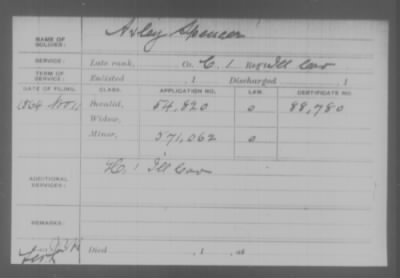 NAME OF SOLDIER: Axley Spencer
SERVICE: Late rank, Co. C. 1 Reg't Ill Cav
TERM OF SERVICE: Enlisted , 1 Discharged , 1
DATE OF FILING. CLASS. APPLICATION NO. LAW. CERTIFICATE NO.
1864 Invalid, 54,820 0 88,780
Widow,
Minor, 571,062 0
ADDITIONAL SERVICES: H. 1 Ill Cav
REMARKS:
Died , 1 , at